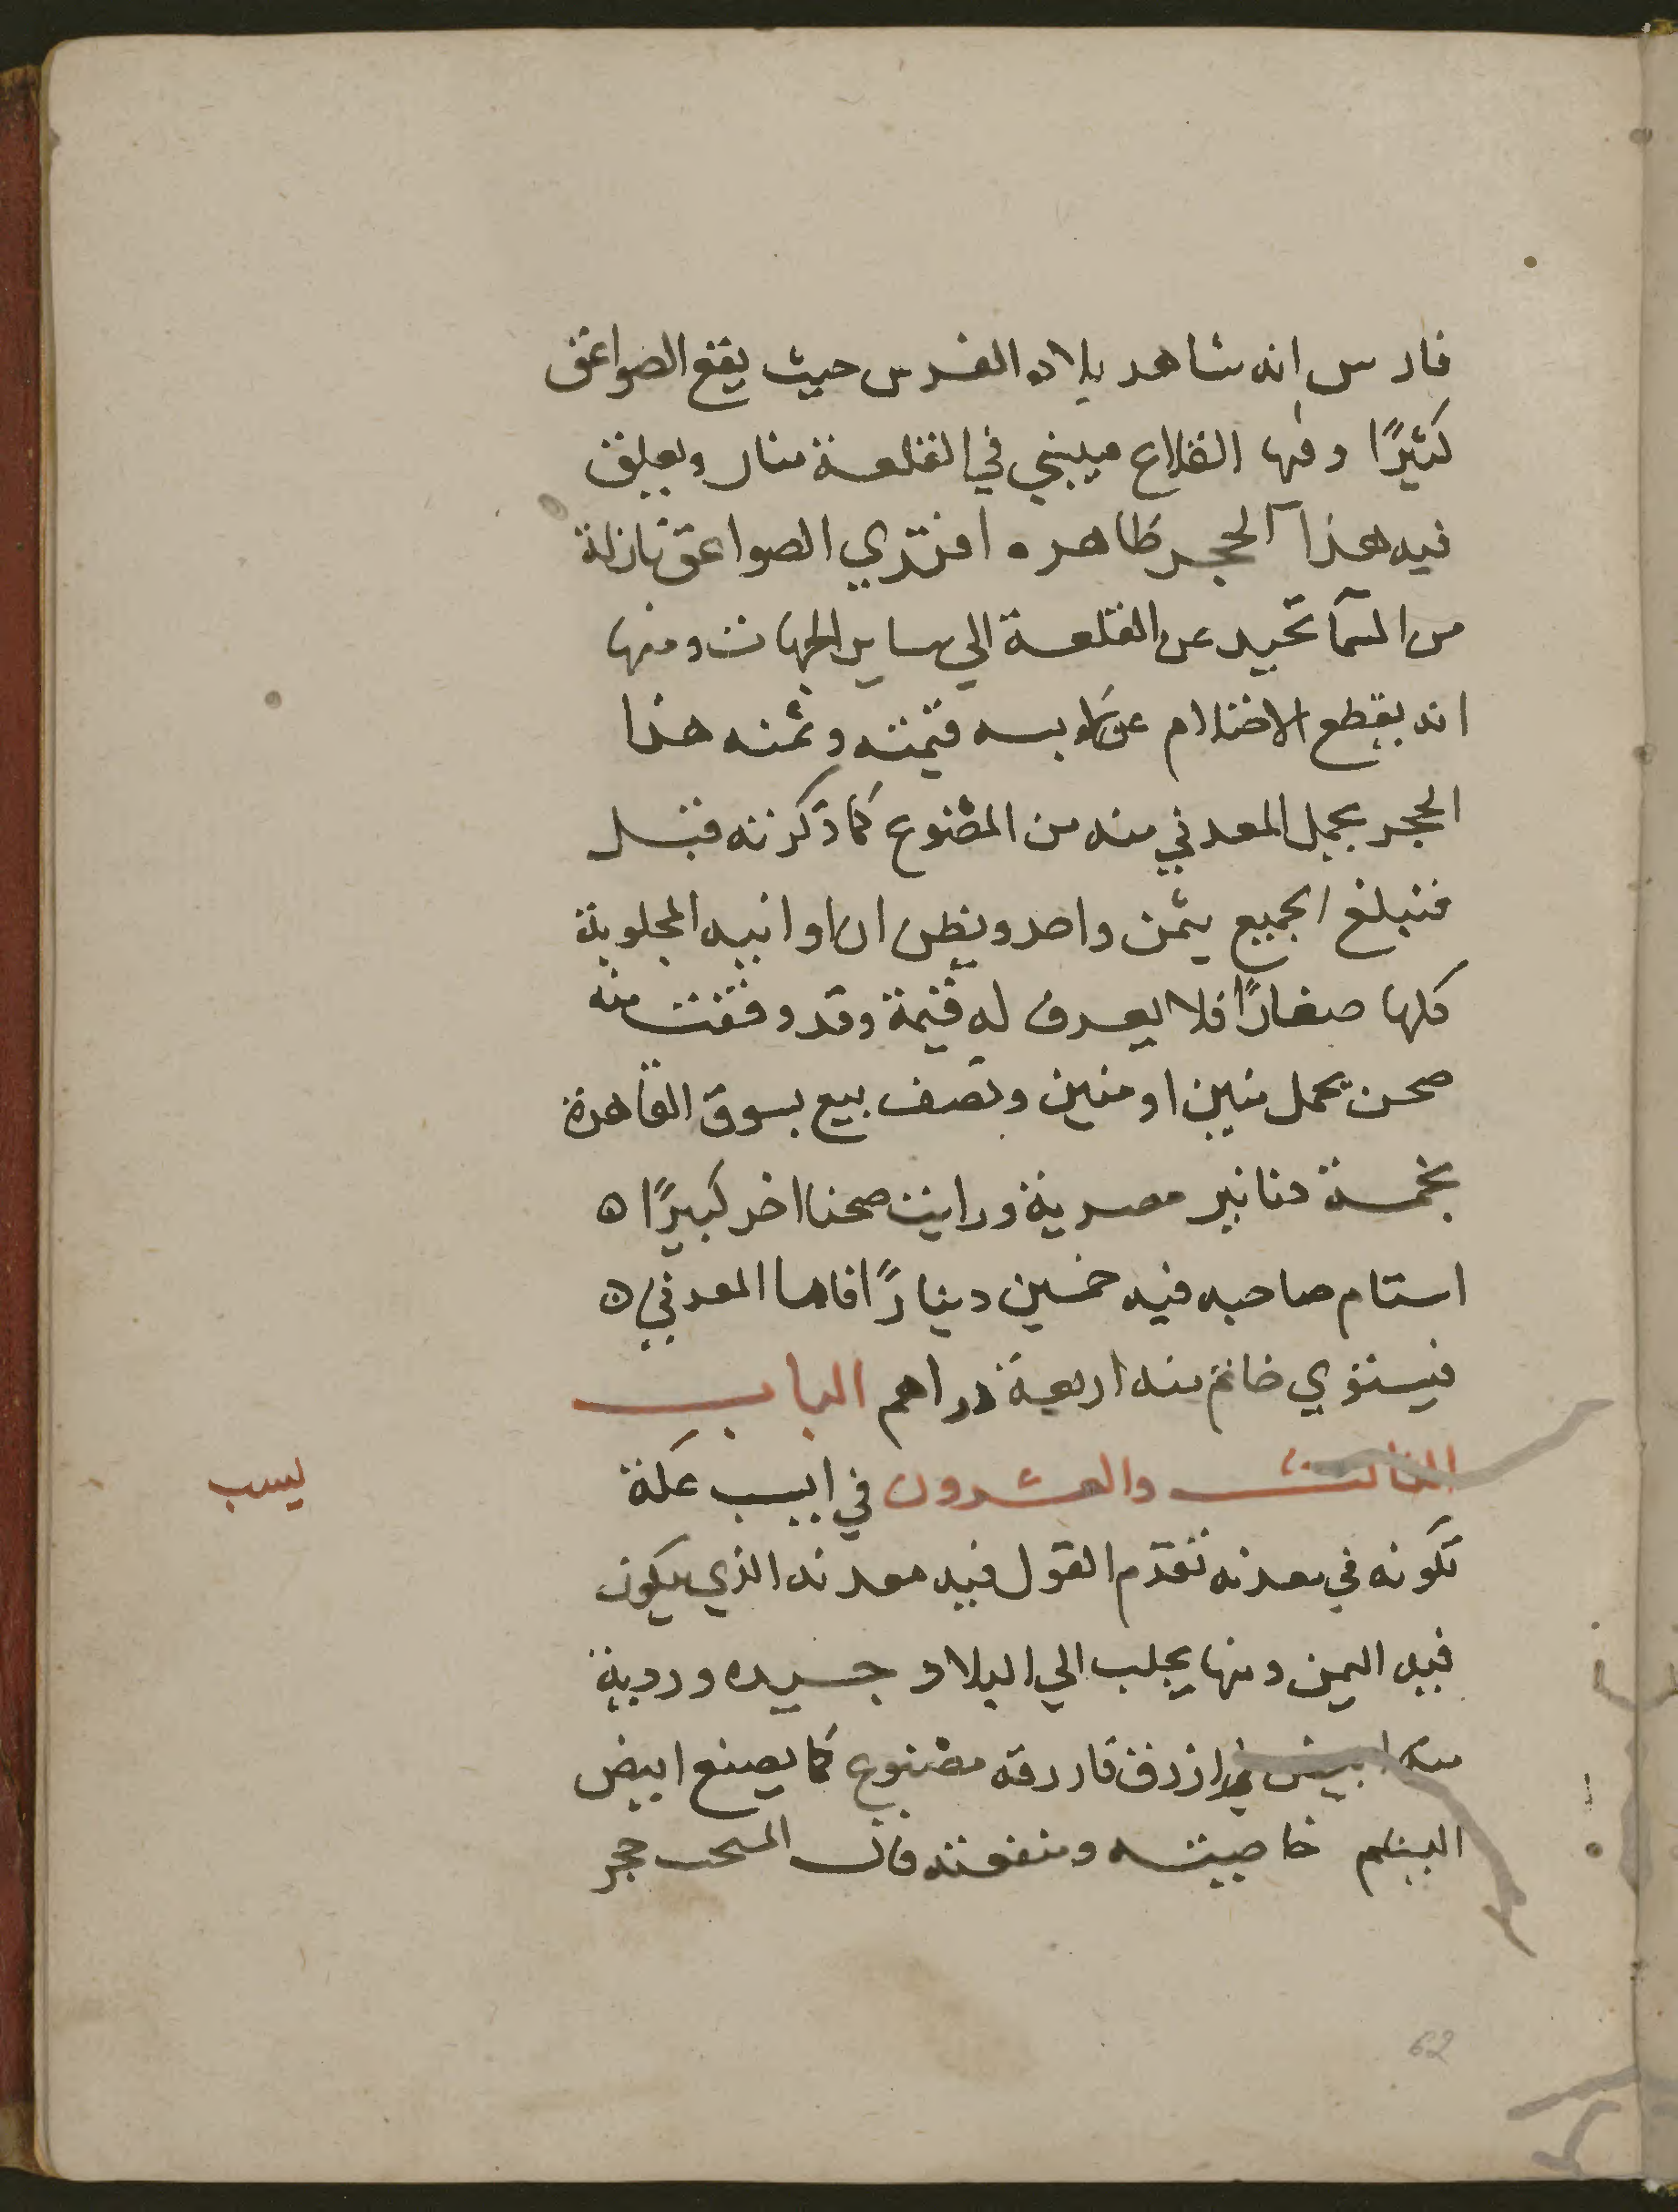 فارس انه شاهد بلاد الفرس حيث يقع الصواعق
كثيرًا وفيها القلاع فيبني في القلعة منار ويعلق
فيه هذا الحجر ظاهره افترى الصواعق نازلة
من السمآ تحيد عن القلعة الي ساير الجهات ومنها
انه يقطع الاحتلام عن لابسه قيمته وثمنه هذا
الحجر يجهل المعدني منه من المصنوع كما ذكرته قبل
فتبلغ الجميع بثمن واحد ويظن ان اوانيه المجلوبة
كلها صغارًا فلا يعرف له قيمة وقد وقفت منه
صحن يحمل منين او منين ونصف بيع بسوق القاهرة
بخمسة دنانير مصرية ورايت صحنا اخر كبيرًا ه
استام صاحبه فيه خمسين دينارًا فاما المعدني ه
فيستوي خاتم منه اربعة دراهم الباب
الثالث والعشرون في ايسب علة
يسب
تكونه في معدنه تقدم القول فيه معدنه الذي يكون
فيه اليمن ومنها يجلب الي البلاد جيده ورديه
منه ابيض ازرق قازرقه مصنوع كما يصنع ابيض
البنلم خاصيته ومنفعته قال حجر
62